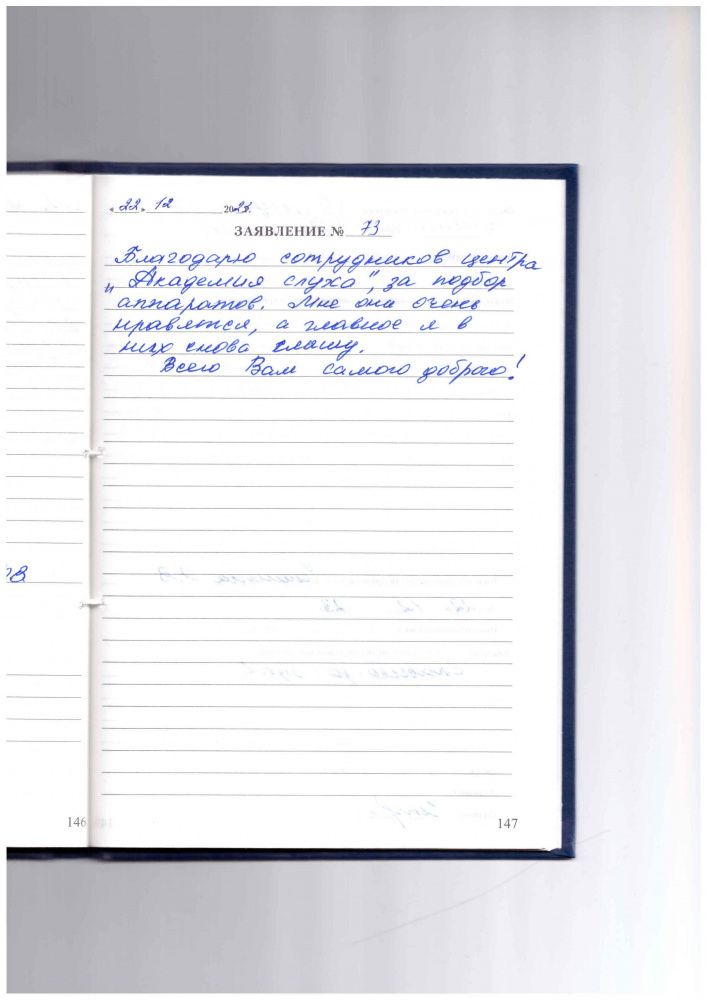 «22» 12 2023.
ЗАЯВЛЕНИЕ № 73
Благодарю сотрудников центра
„Академия слуха", за подбор
аппаратов. Мне они очень
нравятся, а главное я в
них снова слышу.
Всего Вам самого доброго!
146
147